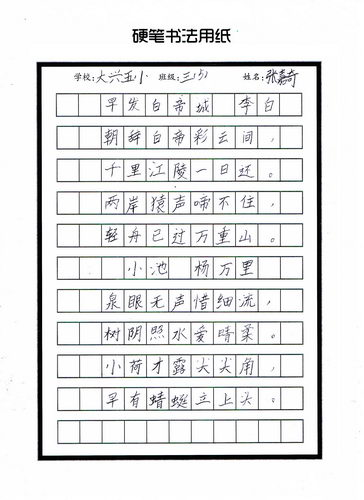 硬笔书法用纸
学校:大兴五小 班级:三(5) 姓名:张嘉奇
早发白帝城 李白
朝辞白帝彩云间,
千里江陵一日还。
两岸猿声啼不住,
轻舟已过万重山。
小池 杨万里
泉眼无声惜细流,
树阴照水爱晴柔。
小荷才露尖尖角,
早有蜻蜓立上头。